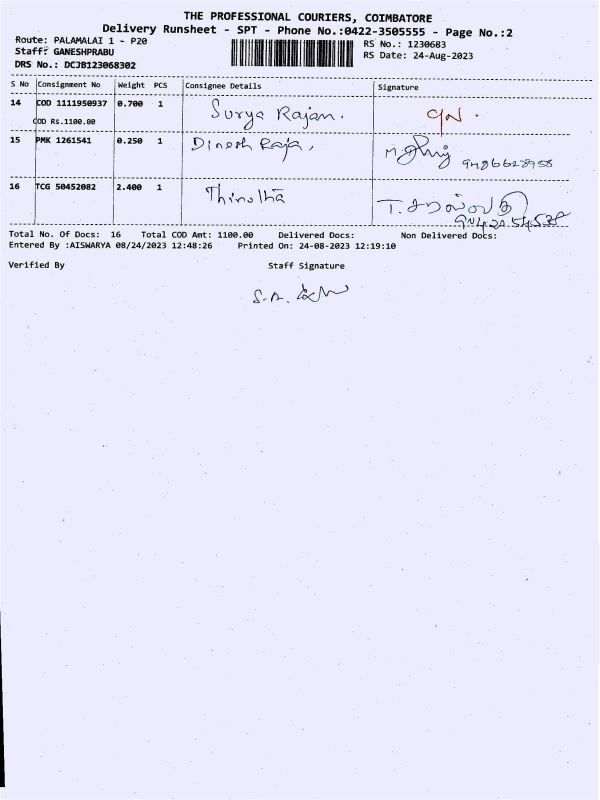 THE PROFESSIONAL COURIERS, COIMBATORE
Delivery Runsheet - SPT - Phone No.:0422-3505555 - Page No.:2
Route: PALAMALAI 1 - P20
Staff: GANESHPRABU
DRS No.: DCJB123068302
RS No.: 1230683
RS Date: 24-Aug-2023
S No Consignment No Weight PCS Consignee Details Signature
14 COD 1111950937 0.700 1 Surya Rajan.
COD Rs.1100.00
15 PMK 1261541 0.250 1 Dinesh Raja,
9486628958
16 TCG 50452082 2.400 1
Total No. Of Docs: 16 Total COD Amt: 1100.00 Delivered Docs: Non Delivered Docs:
Entered By :AISWARYA 08/24/2023 12:48:26 Printed On: 24-08-2023 12:19:10
Verified By Staff Signature